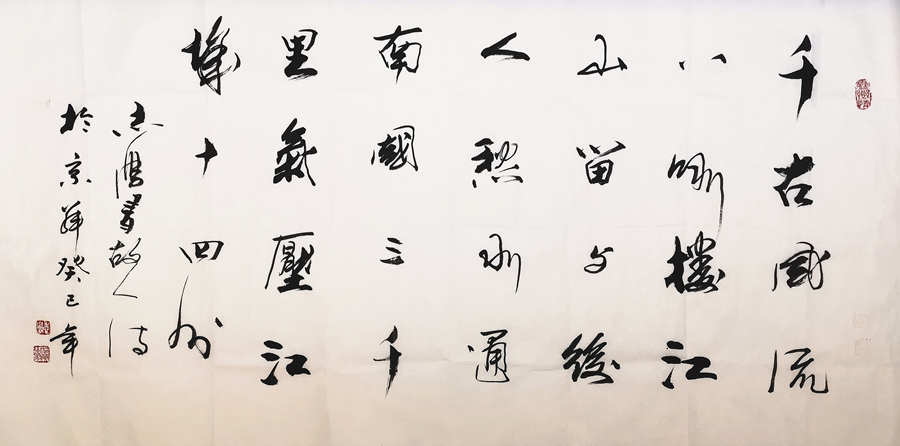 千古風流
八咏樓江
山留与後
人愁水通
南國三千
里氣壓江
城十四州
書故人诗
於京華癸巳年